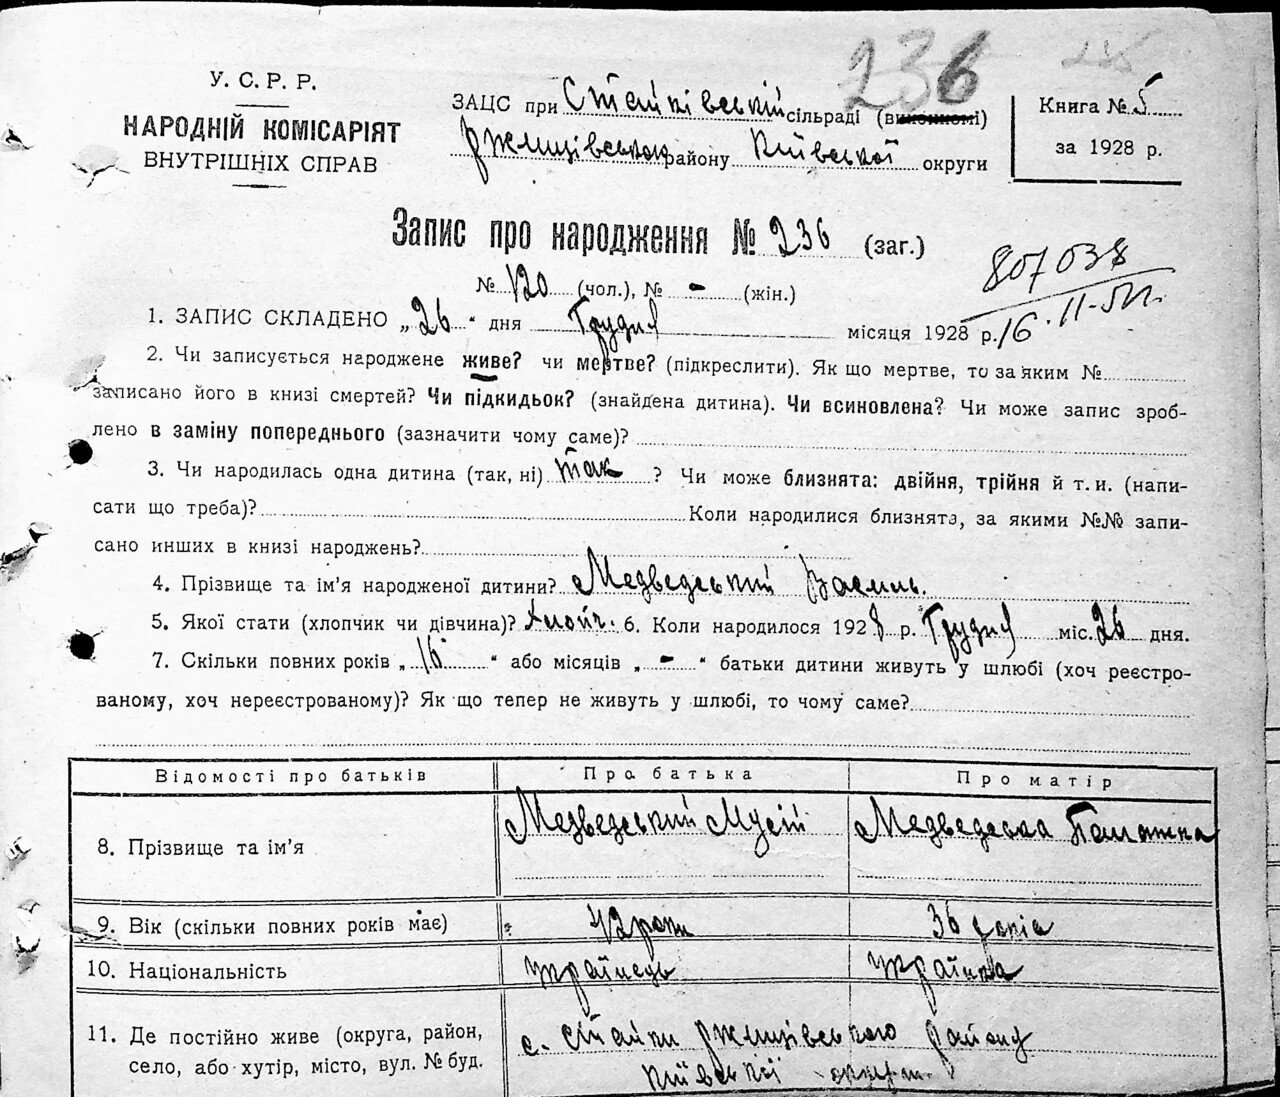 236
У. С. Р. Р.
НАРОДНІЙ КОМІСАРІЯТ
ВНУТРІШНІХ СПРАВ
ЗАЦС при Стайківській сільраді (виконкомі)
Ржищівського району Київської округи
Книга № 5
за 1928 р.
Запис про народження № 236 (заг.)
№ 120 (чол.), № - (жін.)
807038
16.11-51г.
1. ЗАПИС СКЛАДЕНО „26“ дня Грудня місяця 1928 р.
2. Чи записується народжене живе? чи мертве? (підкреслити). Як що мертве, то за яким №
записано його в книзі смертей? Чи підкидьок? (знайдена дитина). Чи всиновлена? Чи може запис зроб-
лено в заміну попереднього (зазначити чому саме)?
3. Чи народилась одна дитина (так, ні) так? Чи може близнята: двійня, трійня й т. и. (напи-
сати що треба)? Коли народилися близнята, за якими №№ запи-
сано инших в книзі народжень?
4. Прізвище та ім’я народженої дитини? Медведський Василь.
5. Якої стати (хлопчик чи дівчина)? Хлопч. 6. Коли народилося 1928 р. Грудня міс. 26 дня.
7. Скільки повних років „16“ або місяців „-“ батьки дитини живуть у шлюбі (хоч реєстро-
ваному, хоч нереєстрованому)? Як що тепер не живуть у шлюбі, то чому саме?
Відомості про батьків Про батька Про матір
8. Прізвище та ім’я Медведський Мусій Медведська Палажка
9. Вік (скільки повних років має) 42 роки 36 років
10. Національність Українець Українка
11. Де постійно живе (округа, район, с. Стайки Ржищівського району
село, або хутір, місто, вул. № буд. Київської округи